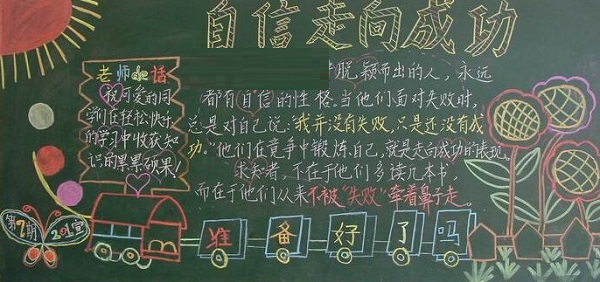 自信走向成功
老师de话
祝可爱的同
学们在轻松快乐
的学习中收获知
识的累累硕果!
脱颖而出的人,永远
都有自信的性格。当他们面对失败时,
总是对自己说:“我并没有失败,只是还没有成
功。”他们在竞争中锻炼自己,就是走向成功的表现。
求知者,不在于他们多读几本书,
而在于他们从来不被“失败”牵着鼻子走。
第7期
准备好了吗